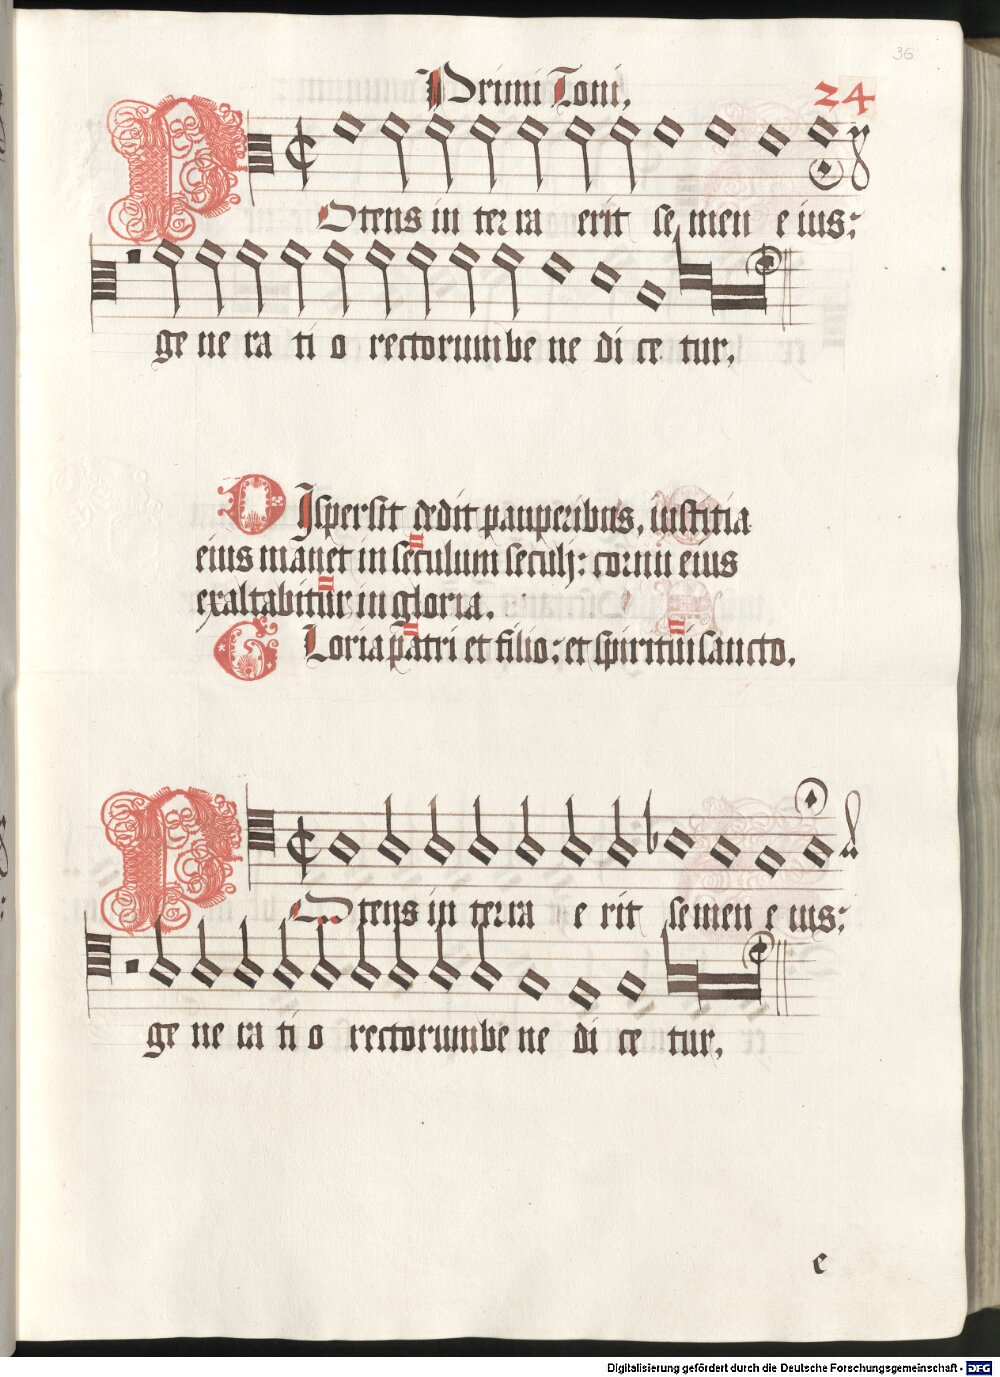 36
Primi Toni,
24
POtens in ter ra erit se men e ius:
ge ne ra ti o rectorum be ne di ce tur,
DIspersit dedit pauperibus, iustitia
eius manet in seculum seculj: cornu eius
exaltabitur in gloria.
GLoria patri et filio: et spiritui sancto.
POtens in terra e rit semen e ius:
ge ne ra ti o rectorum be ne di ce tur,
c
Digitalisierung gefördert durch die Deutsche Forschungsgemeinschaft - DFG